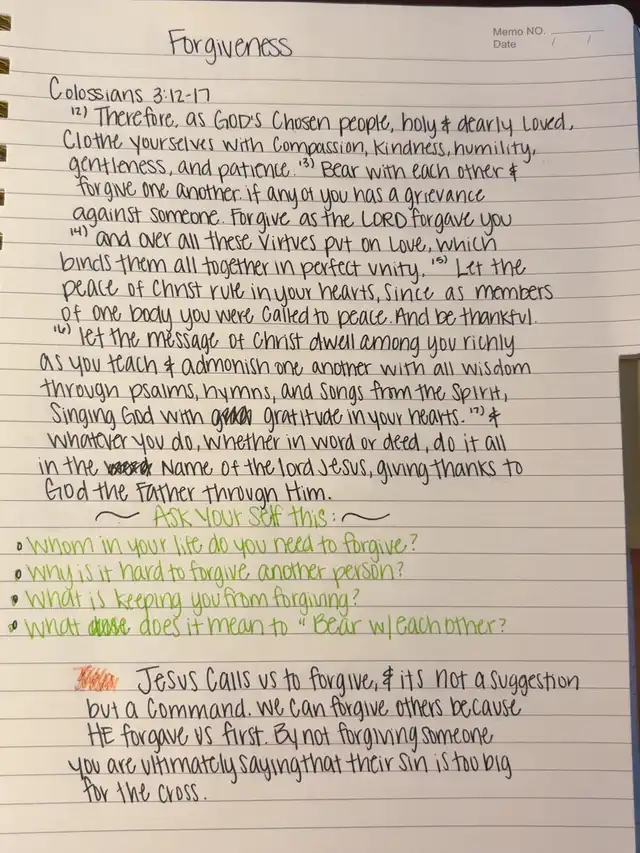 Memo NO.
Date / /
Forgiveness
Colossians 3:12-17
12) Therefore, as GOD'S Chosen people, holy & dearly Loved,
Clothe yourselves with Compassion, Kindness, humility,
gentleness, and patience. 13) Bear with each other &
forgive one another. if any of you has a grievance
against someone. Forgive as the LORD forgave you
14) and over all these Virtues put on Love, which
binds them all together in perfect unity. 15) Let the
peace of Christ rule in your hearts, Since as members
of one body you were Called to peace. And be thankful.
16) let the message of Christ dwell among you richly
as you teach & admonish one another with all wisdom
through psalms, hymns, and Songs from the Spirit,
Singing God with gratitude in your hearts. 17) &
whatever you do, whether in word or deed, do it all
in the Name of the lord Jesus, giving thanks to
God the Father through Him.
~ Ask Your Self this: ~
• Whom in your life do you need to forgive?
• Why is it hard to forgive another person?
• What is keeping you from forgiving?
• What does it mean to "Bear w/each other?
Jesus Calls us to forgive, & its not a suggestion
but a Command. We can forgive others because
HE forgave us first. By not forgiving someone
you are ultimately saying that their Sin is too big
for the cross.